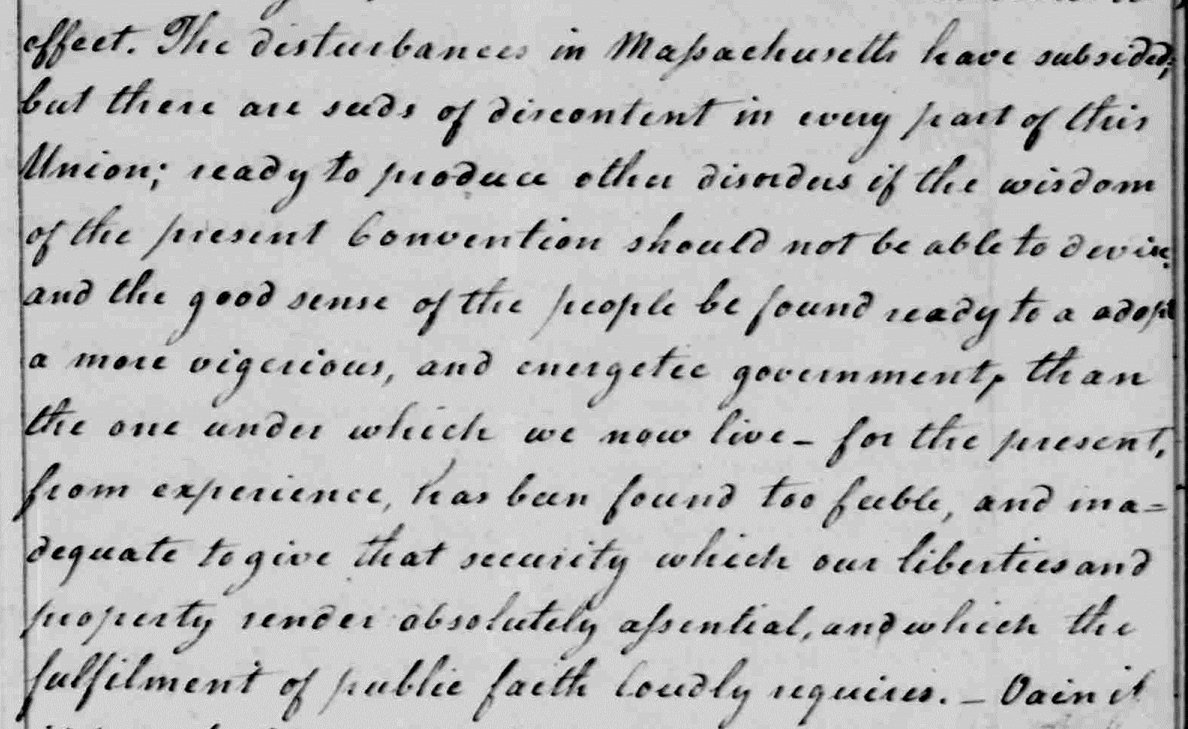 effect. The disturbances in Massachusetts have subsided;
but there are seeds of discontent in every part of this
Union; ready to produce other disorders if the wisdom
of the present Convention should not be able to devise,
and the good sense of the people be found ready to a adopt
a more vigerious, and energetic government, than
the one under which we now live – for the present,
from experience, has been found too feeble, and ina=
dequate to give that security which our liberties and
property render absolutely assential, and which the
fulfilment of public faith loudly requires. – Vain it